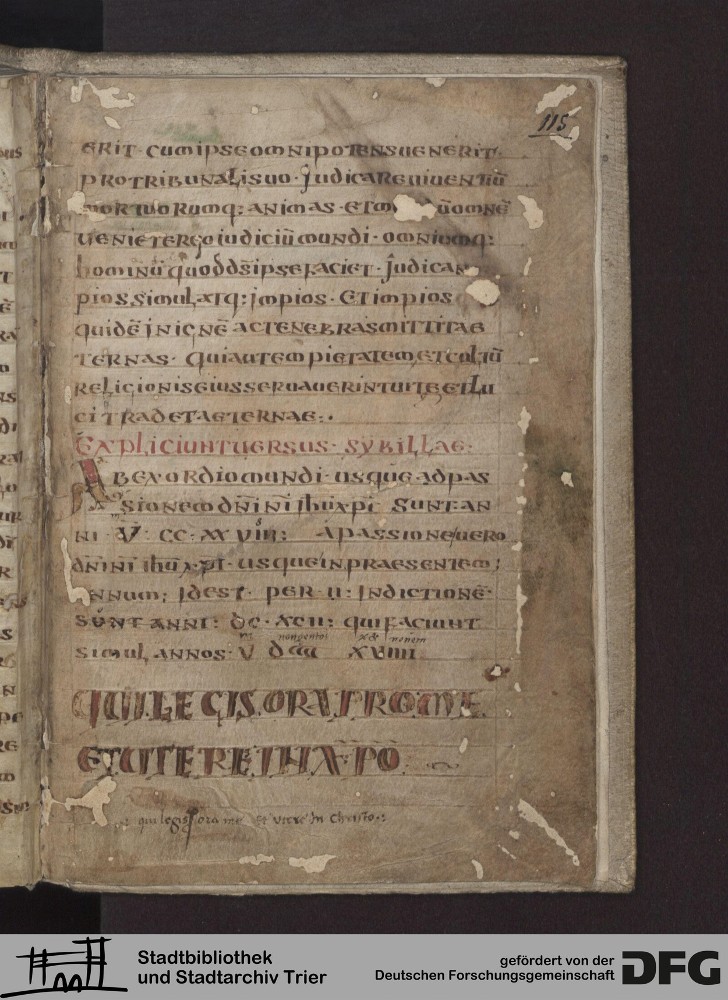 115
ERIT· CUM IPSE OMNIPOTENS UENERIT·
PRO TRIBUNALI SUO· JUDICARE UIUENTIŪ
MORTUORUMQ: ANIMAS· ET ŪOMNĒ
UENIET ERGO IUDICIŪ MUNDI· OMNIUMQ:
hOMINŪ QUOD D̄S IPSE FACIET· JUDICAR
PIOS SIMUL ATQ: JMPIOS· ET IMPIOS
QUIDĒ IN IGNĒ AC TENEBRAS MITTIT AE
TERNAS· QUI AUTEM PIETATEM ET CULTŪ
RELIGIONIS EIUS SERUAUERINT UITE ET LU
CI TRADET AETERNAE:·
EXPLICIUNT UERSUS· SYBILLAE·
AB EXORDIO MUNDI· USQUE AD PAS
SIONEM D̄NI N̄I IHU XPI· SUNT AN
NI· V̄· CC· XX VIII: A PASSIONE UERO
D̄NI N̄I IHU XPI· USQUE IN PRAESENTEM;
ANNUM; IDEST· PER· II: INDICTIONĒ·
SUNT ANNI: DC· XCII: QUI FACIUNT
nongentos x& nouem
SIMUL ANNOS· V̄ DCCCC XVIIII
QUI LEGIS ORA PRO ME
ET UIUERE IN XPO
qui legis ora me et viere in Christo
Stadtbibliothek
und Stadtarchiv Trier
gefördert von der
Deutschen Forschungsgemeinschaft
DFG